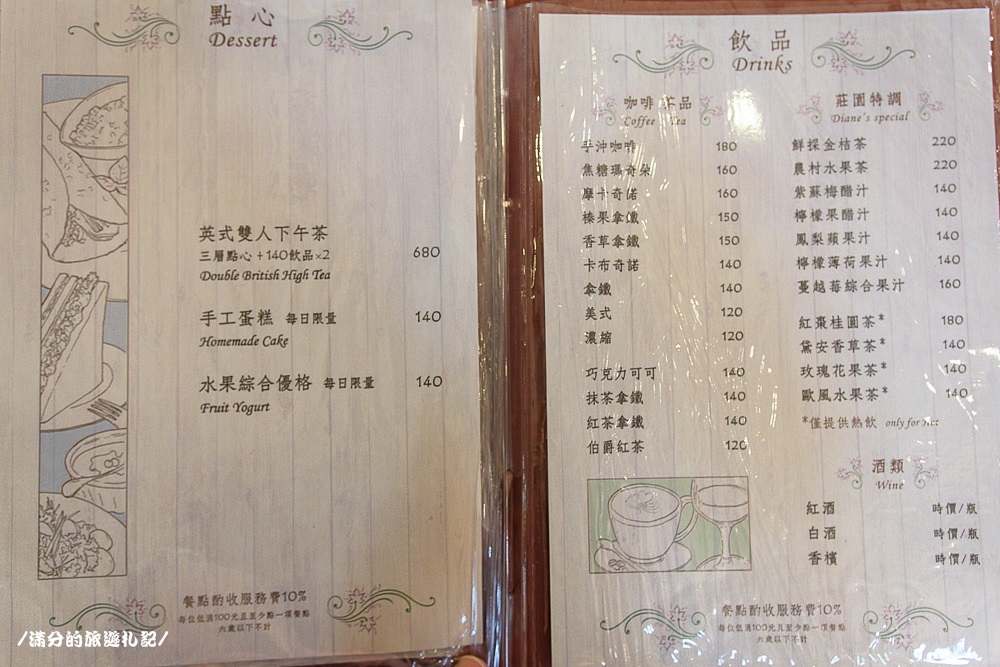 點心
Dessert
英式雙人下午茶
三層點心+140飲品×2 680
Double British High Tea
手工蛋糕 每日限量 140
Homemade Cake
水果綜合優格 每日限量 140
Fruit Yogurt
餐點酌收服務費10%
每位低消100元且至少點一項餐點
六歲以下不計
/滿分的旅遊札記/
飲品
Drinks
咖啡 茶品
Coffee Tea
手沖咖啡 180
焦糖瑪奇朵 160
摩卡奇諾 160
榛果拿鐵 150
香草拿鐵 150
卡布奇諾 140
拿鐵 140
美式 120
濃縮 120
巧克力可可 140
抹茶拿鐵 140
紅茶拿鐵 140
伯爵紅茶 120
莊園特調
Diane's special
鮮採金桔茶 220
農村水果茶 220
紫蘇梅醋汁 140
檸檬果醋汁 140
鳳梨蘋果汁 140
檸檬薄荷果汁 140
蔓越莓綜合果汁 160
紅棗桂圓茶* 180
黛安香草茶* 140
玫瑰花果茶* 140
歐風水果茶* 140
*僅提供熱飲 only for Hot
酒類
Wine
紅酒 時價/瓶
白酒 時價/瓶
香檳 時價/瓶
餐點酌收服務費10%
每位低消100元且至少點一項餐點
六歲以下不計